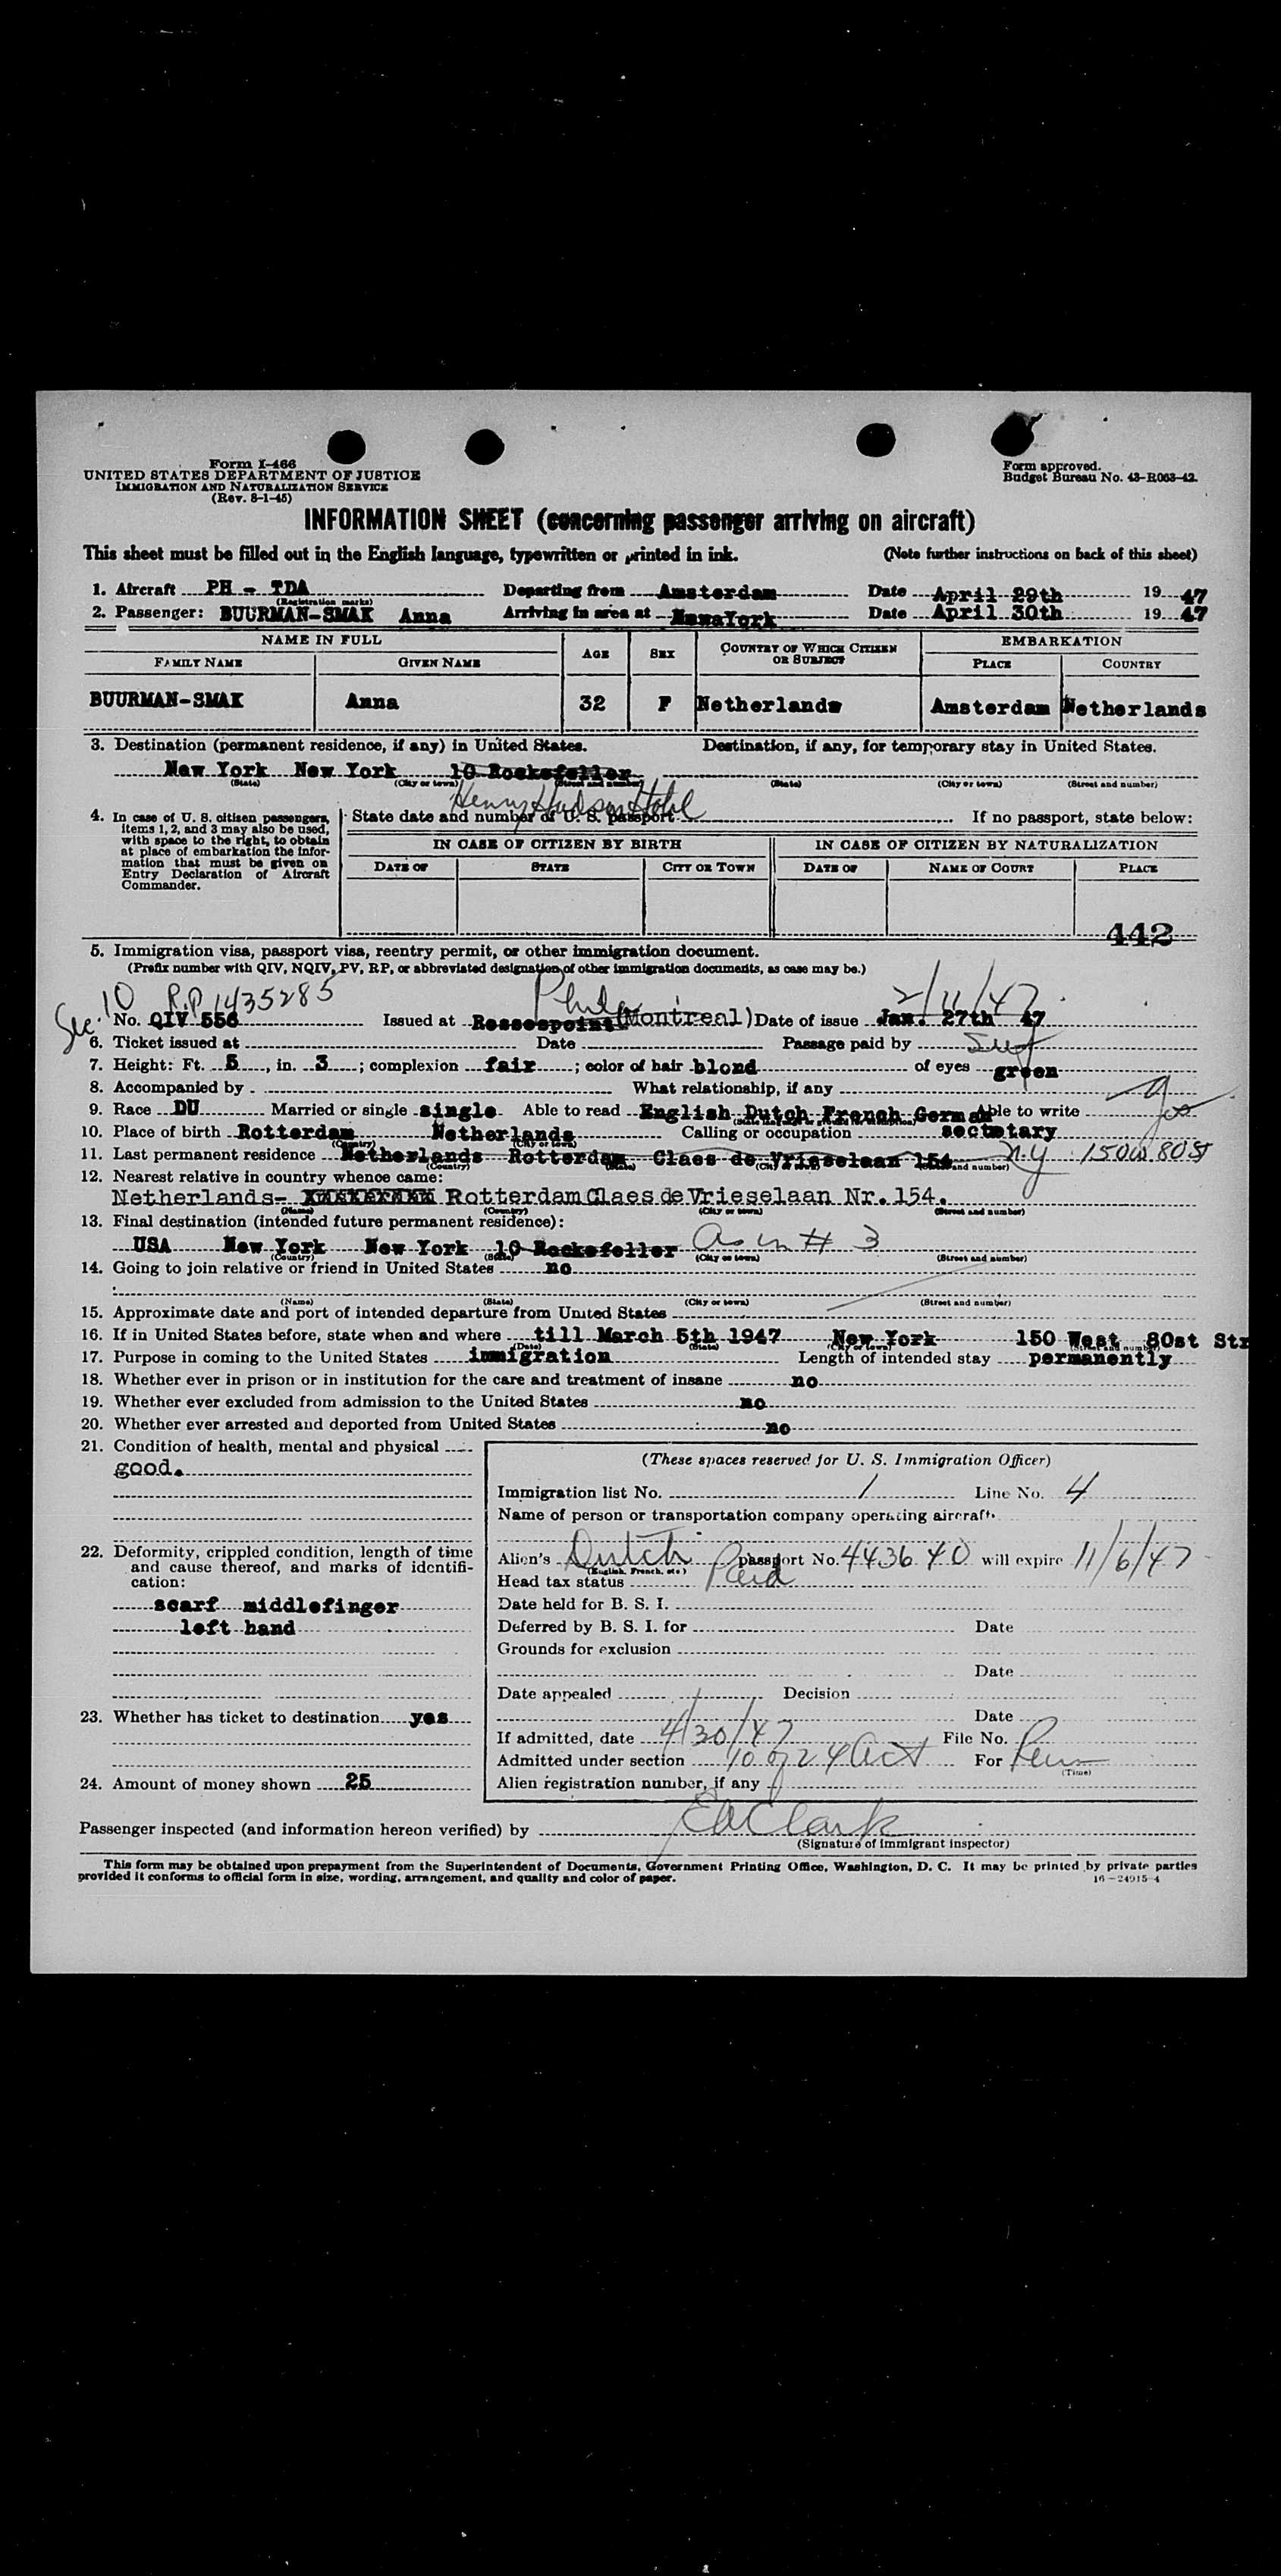 Form I-466
UNITED STATES DEPARTMENT OF JUSTICE
IMMIGRATION AND NATURALIZATION SERVICE
(Rev. 8-1-45)
Form approved.
Budget Bureau No. 43-R063-42.
INFORMATION SHEET (concerning passenger arriving on aircraft)
This sheet must be filled out in the English language, typewritten or printed in ink. (Note further instructions on back of this sheet)
1. Aircraft PH - TDA Departing from Amsterdam Date April 29th 19 47
(Registration marks)
2. Passenger: BUURMAN-SMAK Anna Arriving in area at NewYork Date April 30th 19 47
NAME IN FULL AGE SEX COUNTRY OF WHICH CITIZEN OR SUBJECT EMBARKATION
FAMILY NAME GIVEN NAME PLACE COUNTRY
BUURMAN-SMAK Anna 32 F Netherlands Amsterdam Netherlands
3. Destination (permanent residence, if any) in United States. Destination, if any, for temporary stay in United States.
New York New York 10 Rockefeller
(State) (City or town) (Street and number) (State) (City or town) (Street and number)
Henry Hudson Hotel
4. In case of U. S. citizen passengers, items 1, 2, and 3 may also be used, with space to the right, to obtain at place of embarkation the information that must be given on Entry Declaration of Aircraft Commander.
State date and number of U. S. passport If no passport, state below:
IN CASE OF CITIZEN BY BIRTH IN CASE OF CITIZEN BY NATURALIZATION
DATE OF STATE CITY OR TOWN DATE OF NAME OF COURT PLACE
442
5. Immigration visa, passport visa, reentry permit, or other immigration document.
(Prefix number with QIV, NQIV, PV, RP, or abbreviated designation of other immigration documents, as case may be.)
Sec. 10 R.P 1435285 Phila 2/11/47
No. QIV 556 Issued at (Montreal) Date of issue Jan. 27th 47
6. Ticket issued at Date Passage paid by Self
7. Height: Ft. 5, in. 3; complexion fair; color of hair blond of eyes green
8. Accompanied by What relationship, if any
9. Race DU Married or single single Able to read English Dutch French German Able to write yes
10. Place of birth Rotterdam Netherlands Calling or occupation sectetary
(Country) (City or town)
11. Last permanent residence Netherlands Rotterdam Claes de Vrieselaan 154 N.Y 150 W 80 St
(Country) (State) (City or town) (Street and number)
12. Nearest relative in country whence came:
Netherlands- Rotterdam Claes de Vrieselaan Nr. 154.
(Name) (Country) (City or town) (Street and number)
13. Final destination (intended future permanent residence):
USA New York New York 10 Rockefeller As in # 3
(Country) (State) (City or town) (Street and number)
14. Going to join relative or friend in United States no
(Name) (State) (City or town) (Street and number)
15. Approximate date and port of intended departure from United States
16. If in United States before, state when and where till March 5th 1947 New York 150 West 80st Str
(Date) (State) (City or town) (Street and number)
17. Purpose in coming to the United States immigration Length of intended stay permanently
18. Whether ever in prison or in institution for the care and treatment of insane no
19. Whether ever excluded from admission to the United States no
20. Whether ever arrested and deported from United States no
21. Condition of health, mental and physical
good.
22. Deformity, crippled condition, length of time and cause thereof, and marks of identification:
scarf middlefinger
left hand
23. Whether has ticket to destination yes
24. Amount of money shown 25
(These spaces reserved for U. S. Immigration Officer)
Immigration list No. 1 Line No. 4
Name of person or transportation company operating aircraft
Alien's Dutch passport No. 443640 will expire 11/6/47
(English, French, etc.)
Head tax status Paid
Date held for B. S. I.
Deferred by B. S. I. for Date
Grounds for exclusion
Date
Date appealed Decision
Date
If admitted, date 4/30/47 File No.
Admitted under section 10 of 24 Act For Perm
(Time)
Alien registration number, if any
Passenger inspected (and information hereon verified) by EACLark
(Signature of immigrant inspector)
This form may be obtained upon prepayment from the Superintendent of Documents, Government Printing Office, Washington, D. C. It may be printed by private parties
provided it conforms to official form in size, wording, arrangement, and quality and color of paper. 16-24915-4